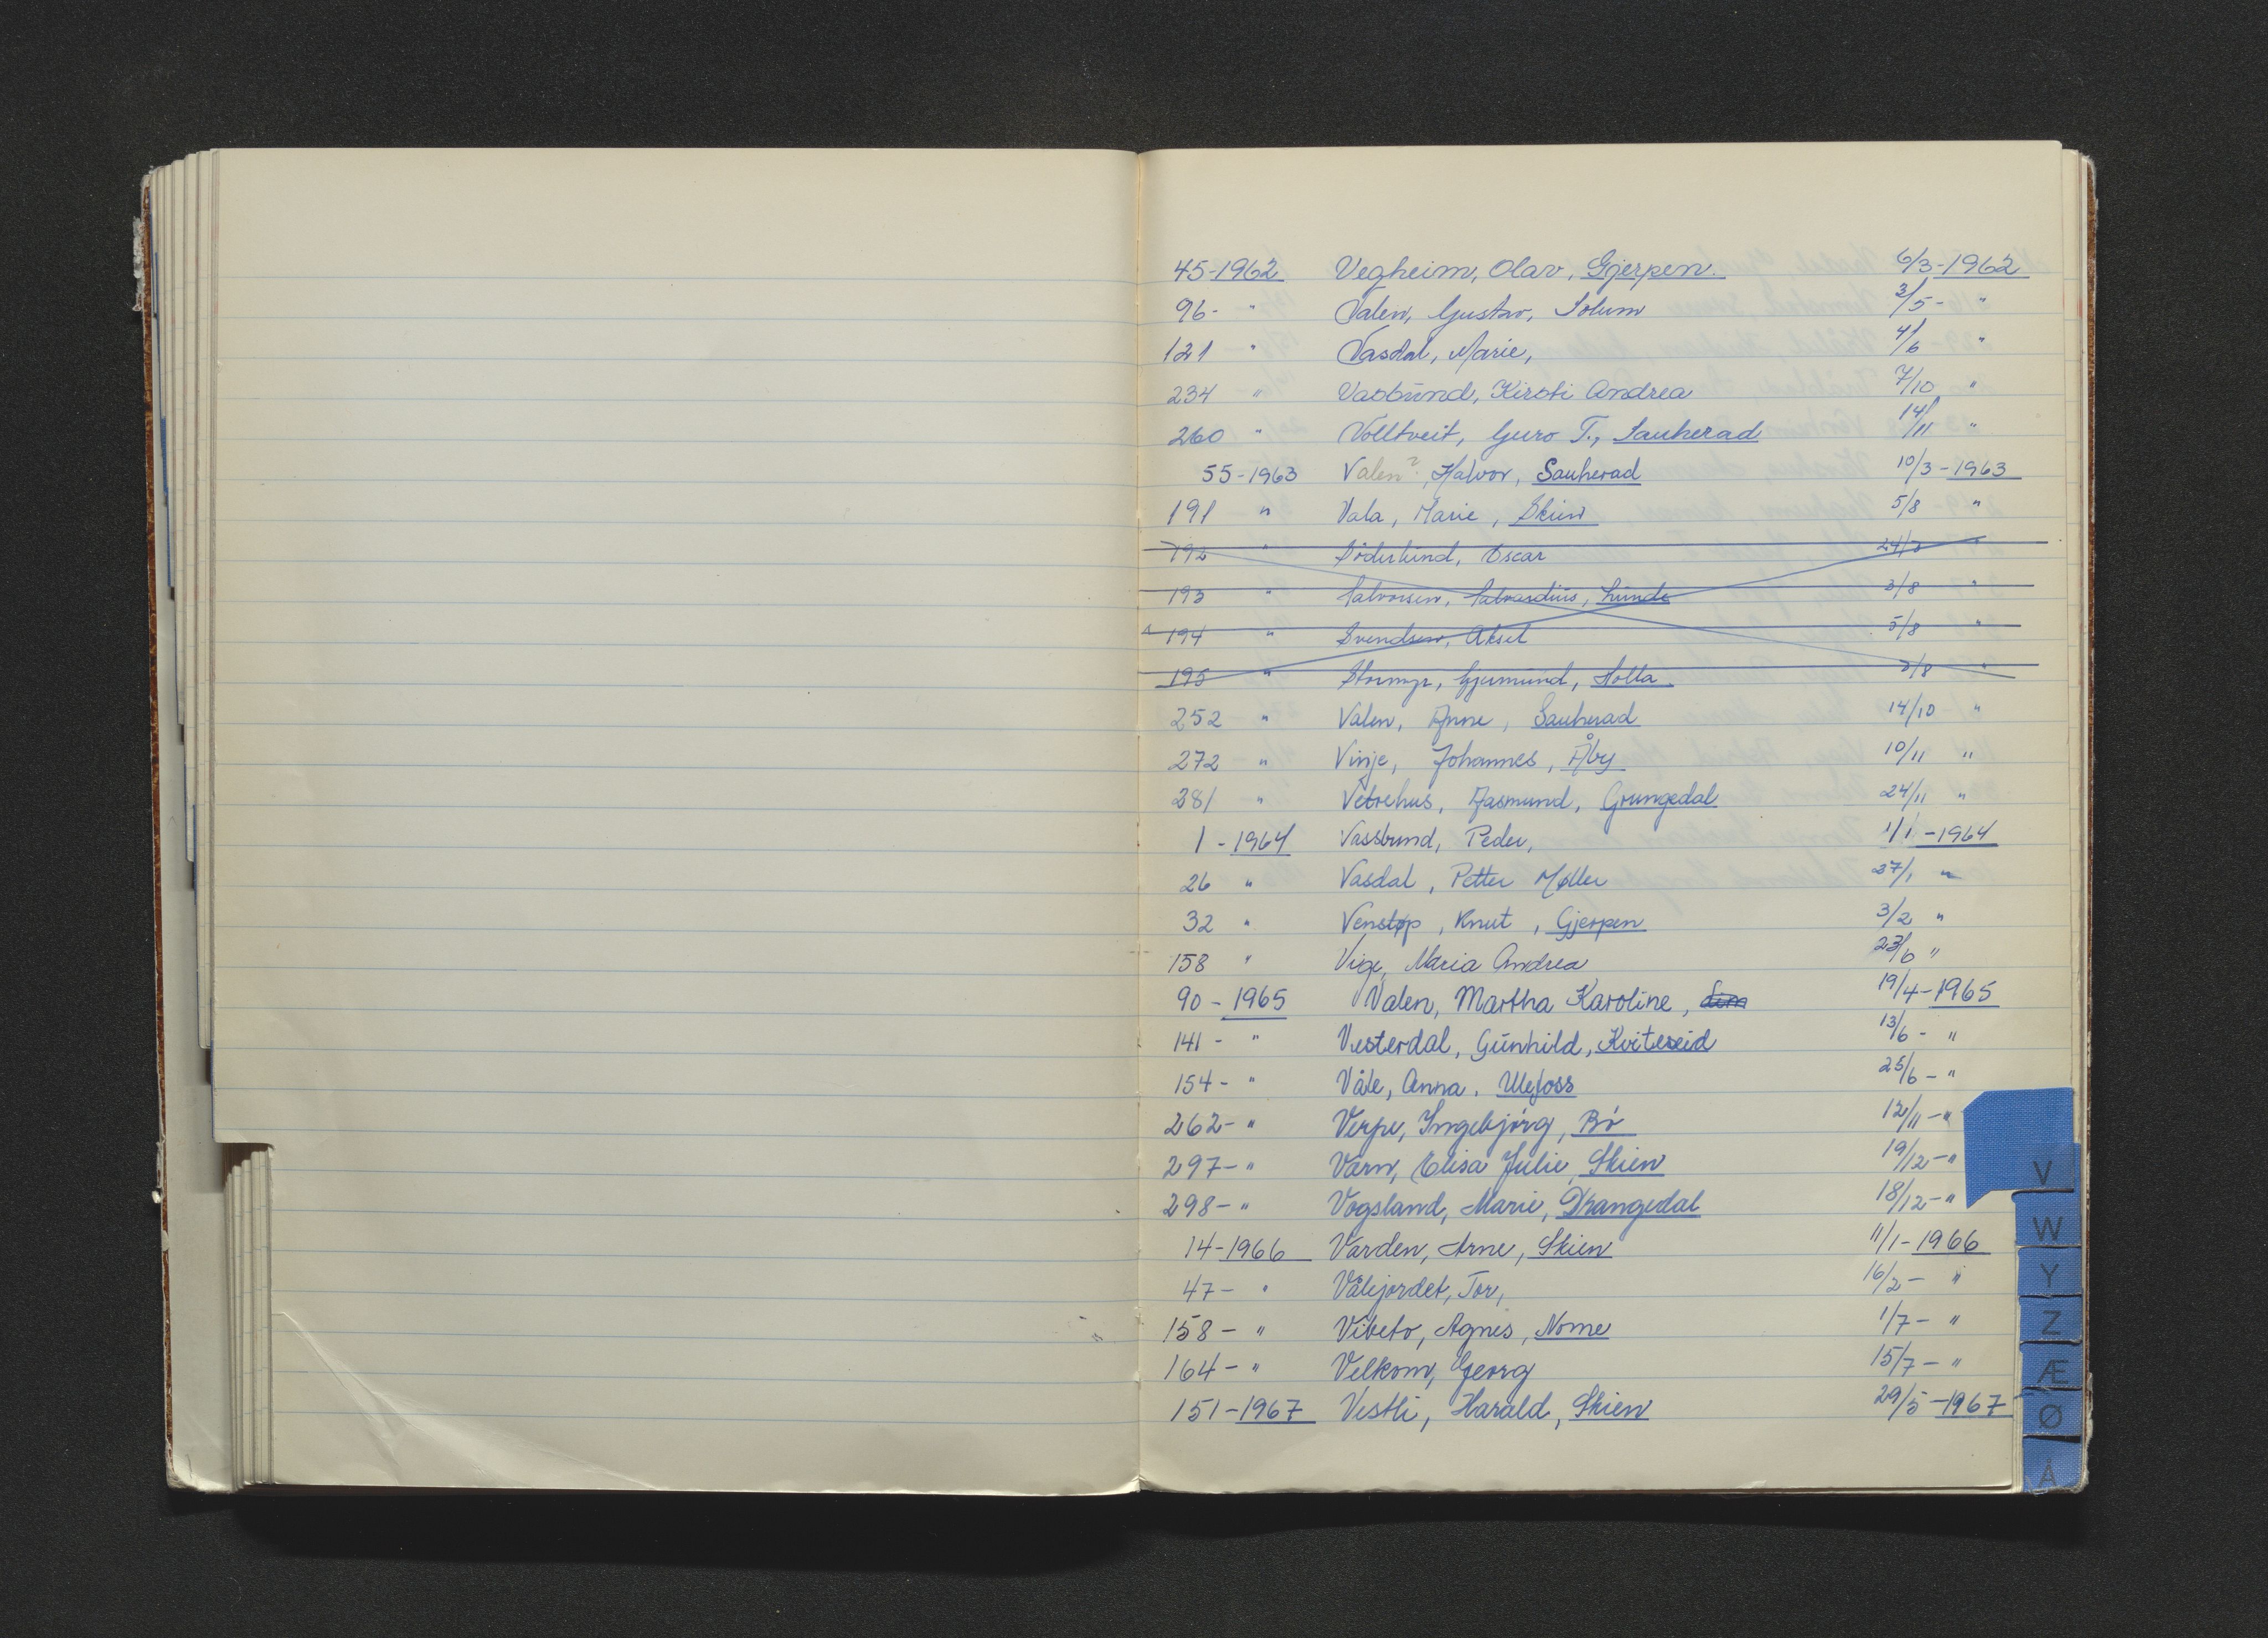 45-1962 Vegheim, Olav, Gjerpen. 6/3-1962
96- " Valen, Gustav, Solum 3/5- "
121 " Vasdal, Marie, 4/6 "
234 " Vasbund, Kirsti Andrea 7/10 "
260 " Volltveit, Guro T., Sauherad 14/11 "
55-1963 Valen?, Halvor, Sauherad 10/3-1963
191 " Vala, Marie, Skien 5/8 "
192 " Söderlund, Oscar 24/7 "
193 " Salvorsen, Lunde 3/8 "
194 " Svendsen, Aksel 5/8 "
195 " Stormyr, Gjermund, Holla 3/8 "
252 " Valen, Anne, Sauherad 14/10 "
272 " Vinje, Johannes, Åby 10/11 "
281 " Vetrehus, Aasmund, Grungedal 24/11 "
1-1964 Vassbund, Peder, 1/1-1964
26 " Vasdal, Petter Møller 27/1 "
32 " Venstøp, Knut, Gjerpen 3/2 "
158 " Vige, Maria Andrea 23/6 "
90-1965 Valen, Martha Karoline, 19/4-1965
141- " Vesterdal, Gunhild, Kviteseid 13/6- "
154- " Våle, Anna. Ulefoss 25/6- "
262- " Verpe, Ingebjørg, Bø 12/11- "
297- " Værn, Elisa Julie, Skien 19/12- "
298- " Vogsland, Marie, Drangedal 18/12- "
14-1966 Varden, Arne, Skien 11/1-1966
47- " Vålijordet, Tor, 16/2- "
158- " Vibeto, Agnes, Nome 1/7- "
164- " Velkom, Georg 15/7- "
151-1967 Vestli, Harald, Skien 29/5-1967
V
W
Y
Z
Æ
Ø
Å